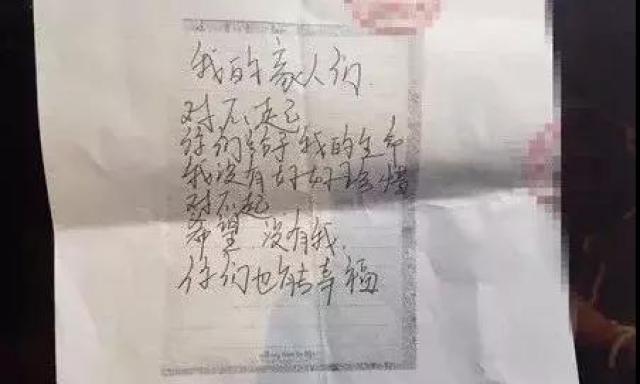 我的家人们.
对不起
你们给予我的生命
我没有好好珍惜
对不起.
希望 没有我.
你们也能幸福